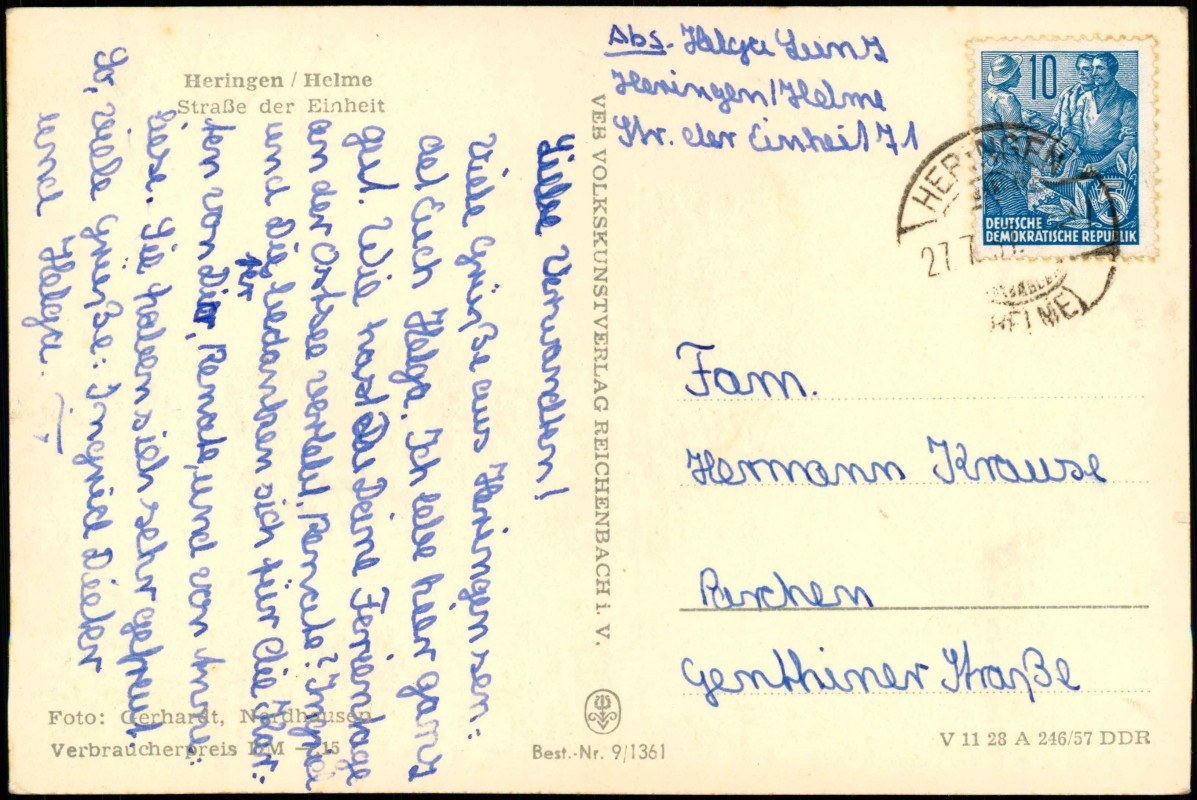 Heringen / Helme
Straße der Einheit
Liebe Verwandten!
Viele Grüße aus Heringen sen:
det Euch Helga. Ich lebe hier ganz
gut. Wie hast Du Deine Ferientage
an der Ostsee verlebt, Renate? Ingrid
und Dieter bedanken sich für die Kar:
ten von Dir, Renate, und von Anne:
liese. Sie haben sich sehr gefreut.
So, viele Grüße: Ingrid Dieter
und Helga.
Foto: Gerhardt, Nordhausen
Verbraucherpreis DM –.15
VEB VOLKSKUNSTVERLAG REICHENBACH i. V.
Best.-Nr. 9/1361
Abs. Helga
Heringen/Helme
Str. der Einheit 71
10
5
DEUTSCHE
DEMOKRATISCHE REPUBLIK
HERINGEN
27.7.
HELME)
Fam.
Hermann Krause
Parchen
Genthiner Straße
V 11 28 A 246/57 DDR